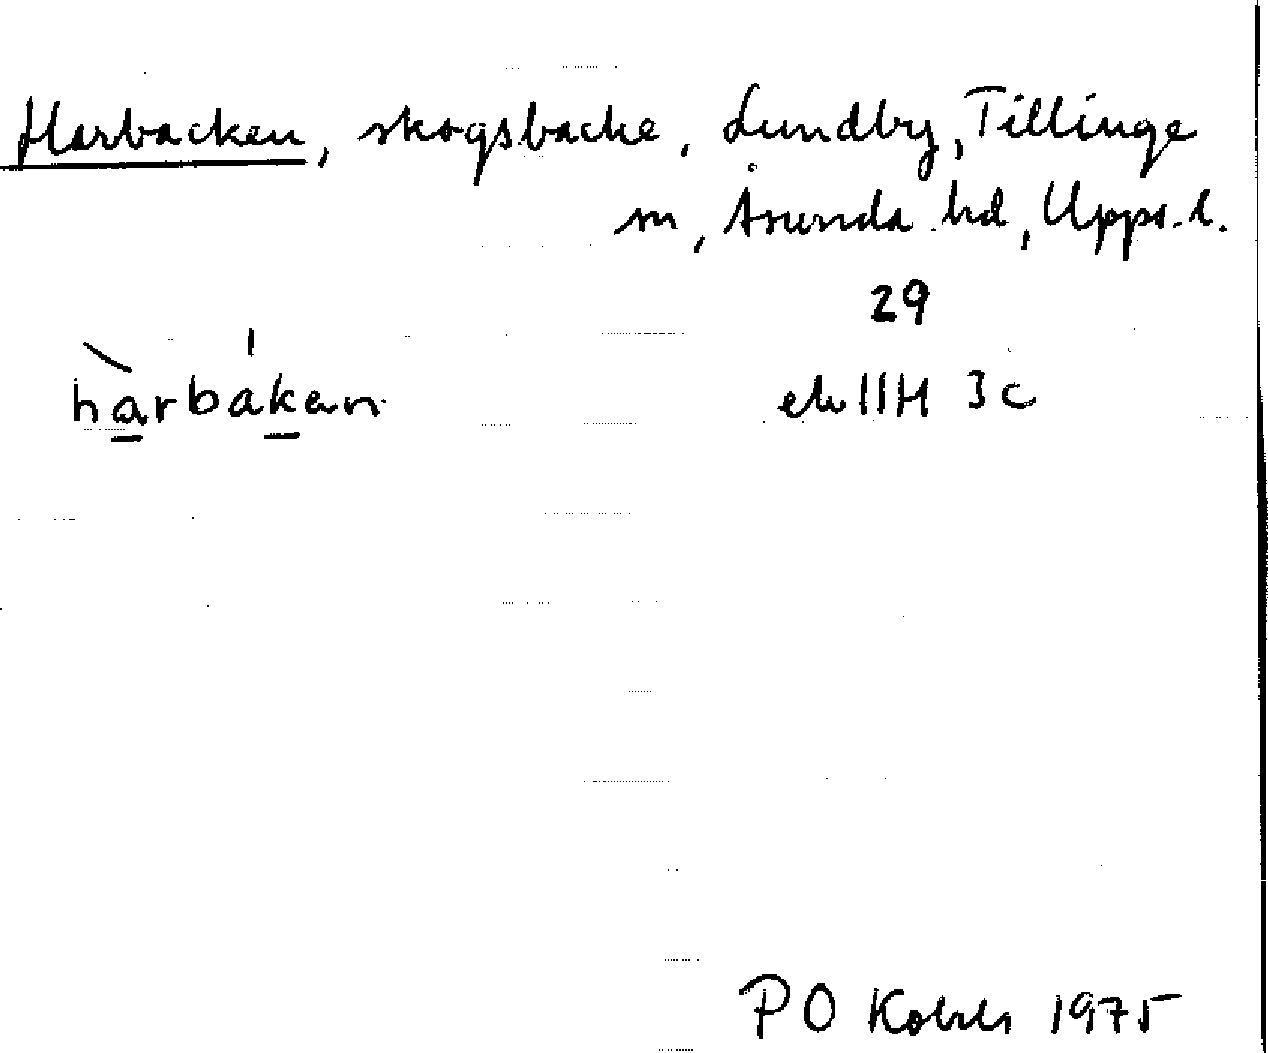 Harbacken, skogsbacke, Lundby, Tillinge
sn, Åsunda hd, Upps. l.
29
hàrbákan
ek 11H 3c
PO Kohls 1975